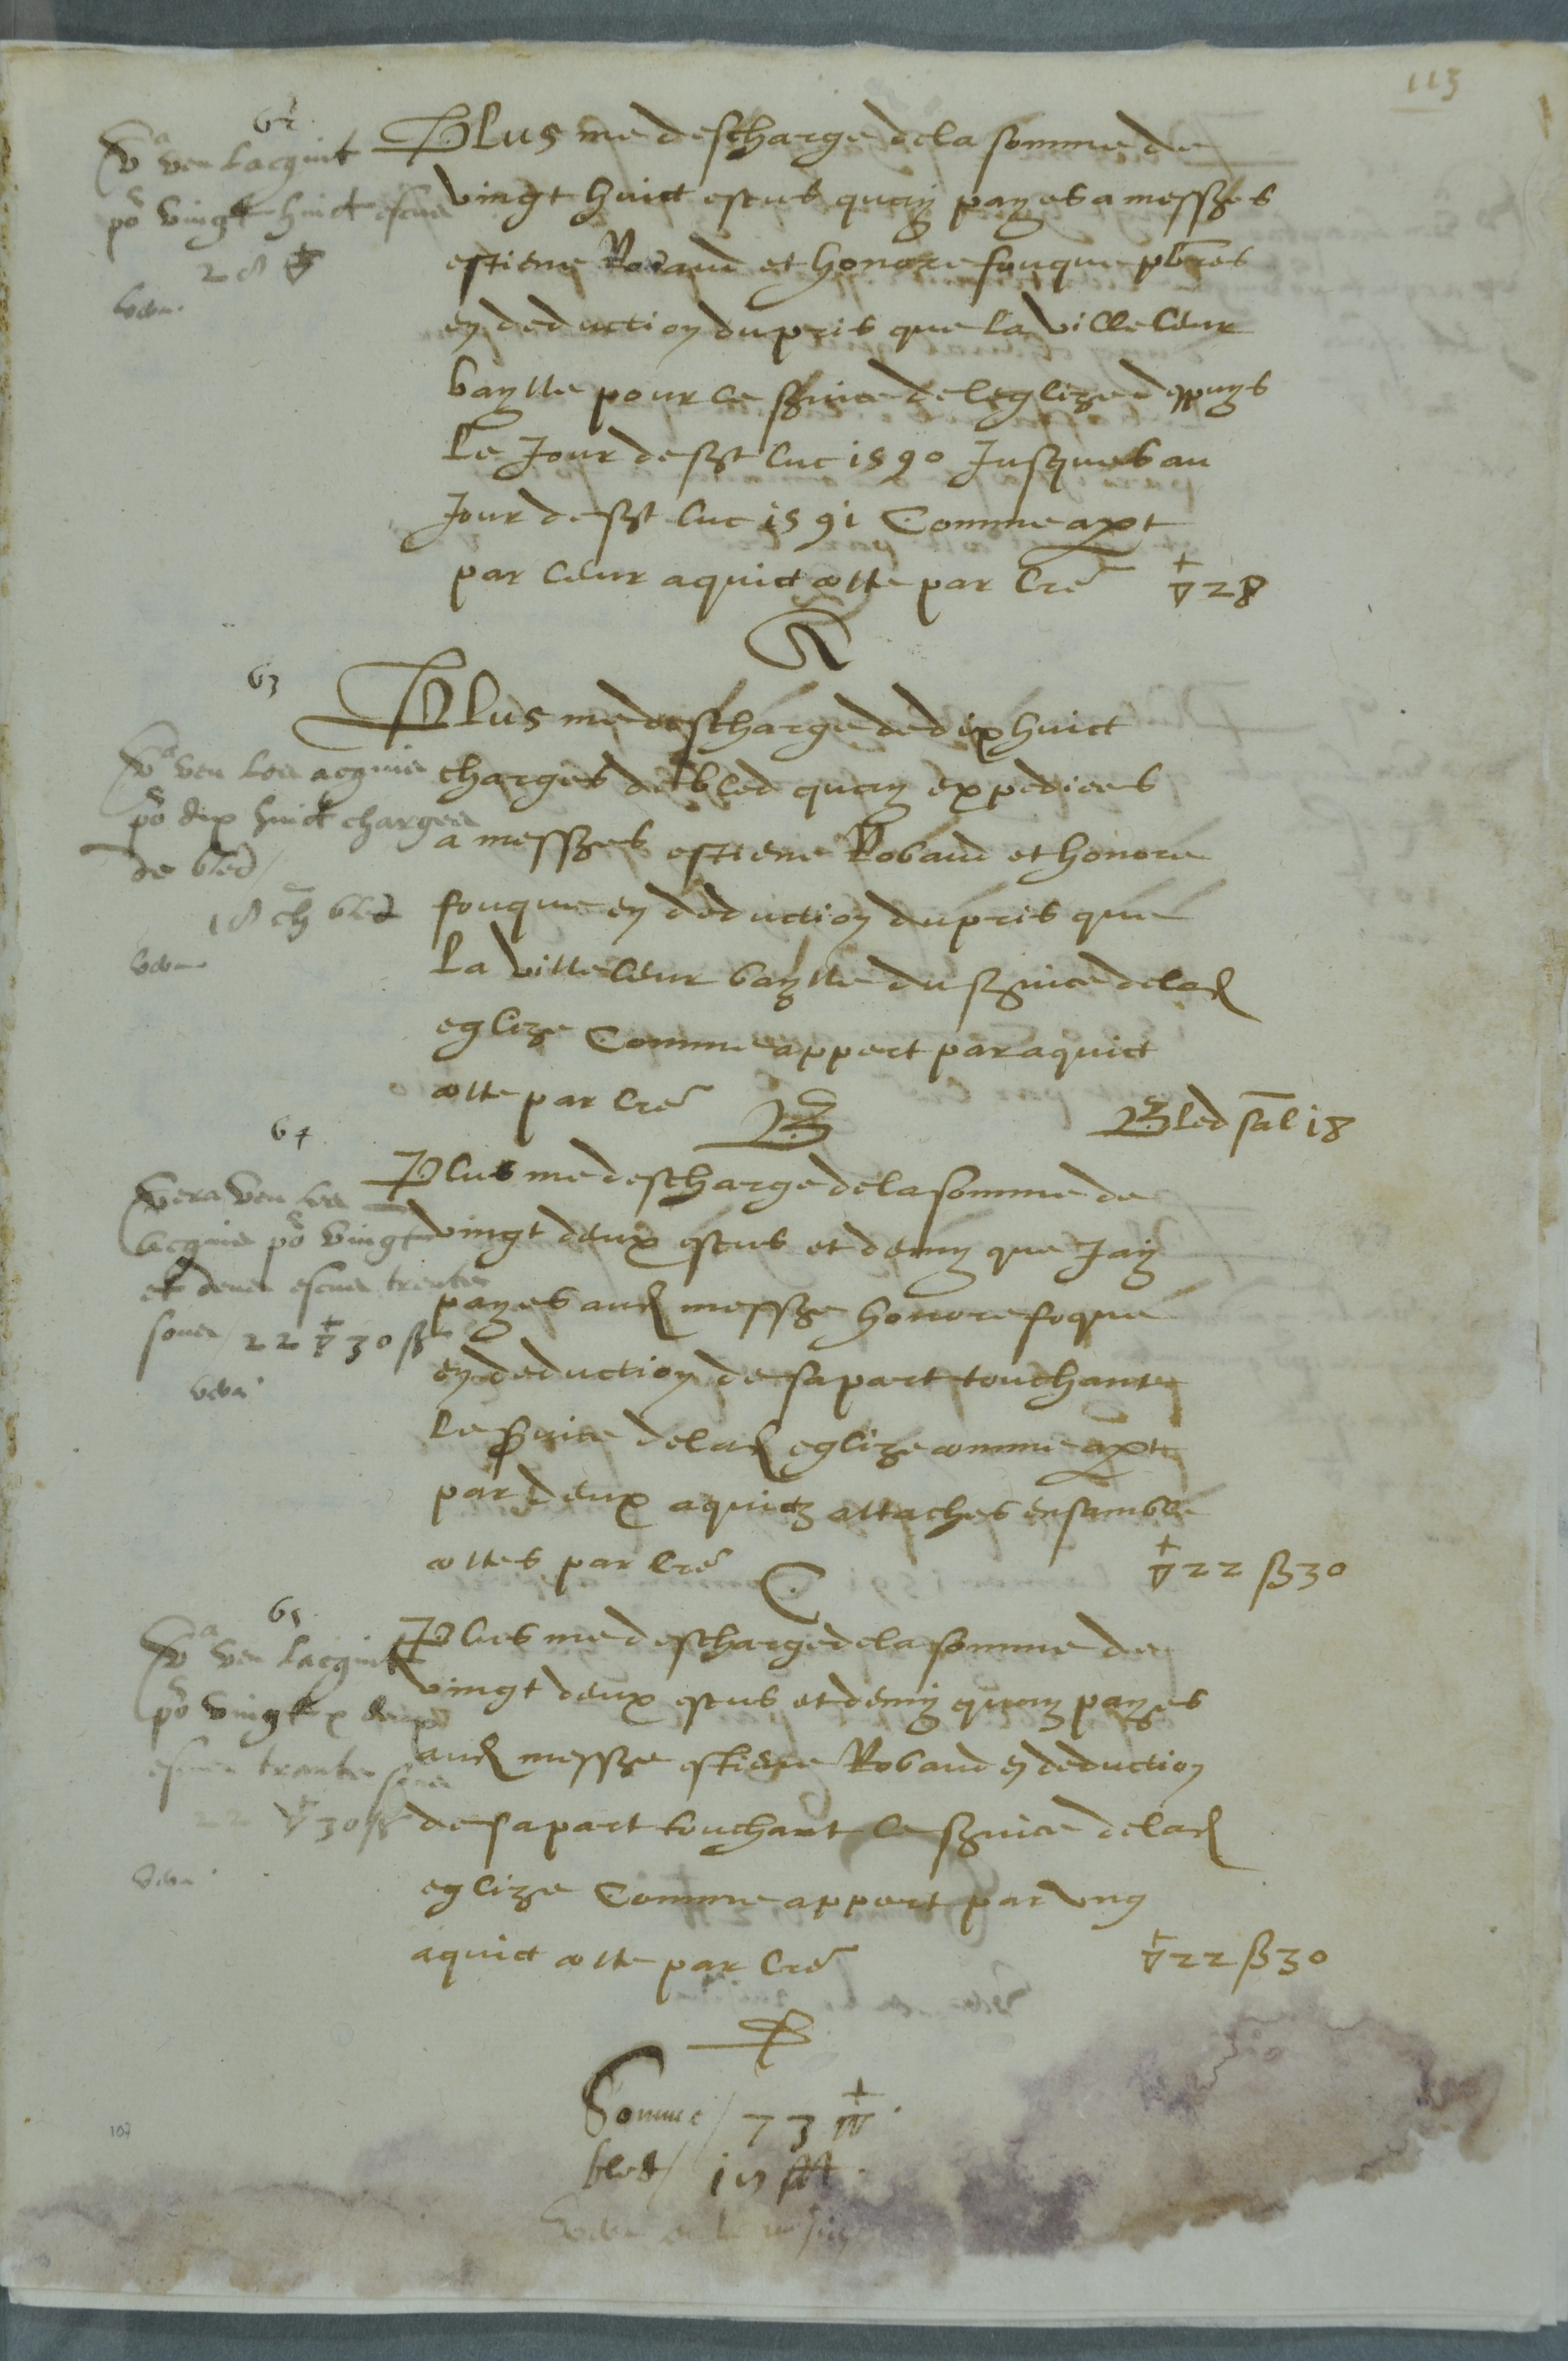 113
62
Va veu lacquit
po vingt huict escus
28 ▽
Plus me descharge de la somme de
vingt huict escus quay payes a messes
estiene Robaud et honore fouque pbres
en deduction du pris que la ville leur
baylle pour le svice de leglize despuys
le Jour de sst luc 1590 Jusques au
Jour de sst luc 1591 Comme apt
par leur aquict cotte par lre ▽ 28
A
63
Va veu les acquis
po dix huict charges
de bled
18 ch bled
Plus me descharge de dix huict
charges de bled quay expediees
a messes estiene Robaud et honore
fouque en deduction du pris que
la ville leur baylle du svice de lad
eglize Comme appert par aquict
cotte par lre B Bled sal 18
64
Vera veu les
acquis po vingt
et deux escus trente
sous 22 ▽ 30 ß
Plus me descharge de la somme de
vingt deux escus et demy que Jay
payes aud messe honore foque
en deduction de sa part touchant
le svice de lad eglize comme apt
par deux aquictz attaches ensamble
cottes par lre C ▽ 22 ß 30
65
Va veu lacquit
po vingt x deux
escus trente sous
22 ▽ 30 ß
Plus me descharge de la somme de
vingt deux escus et demy quay payes
aud messe estiene Robaud en deduction
de sa part touchant le svice de lad
eglize Comme appert par ung
aquict cotte par lre ▽ 22 ß 30
D
Somme / 73 ▽
bled / 18
107